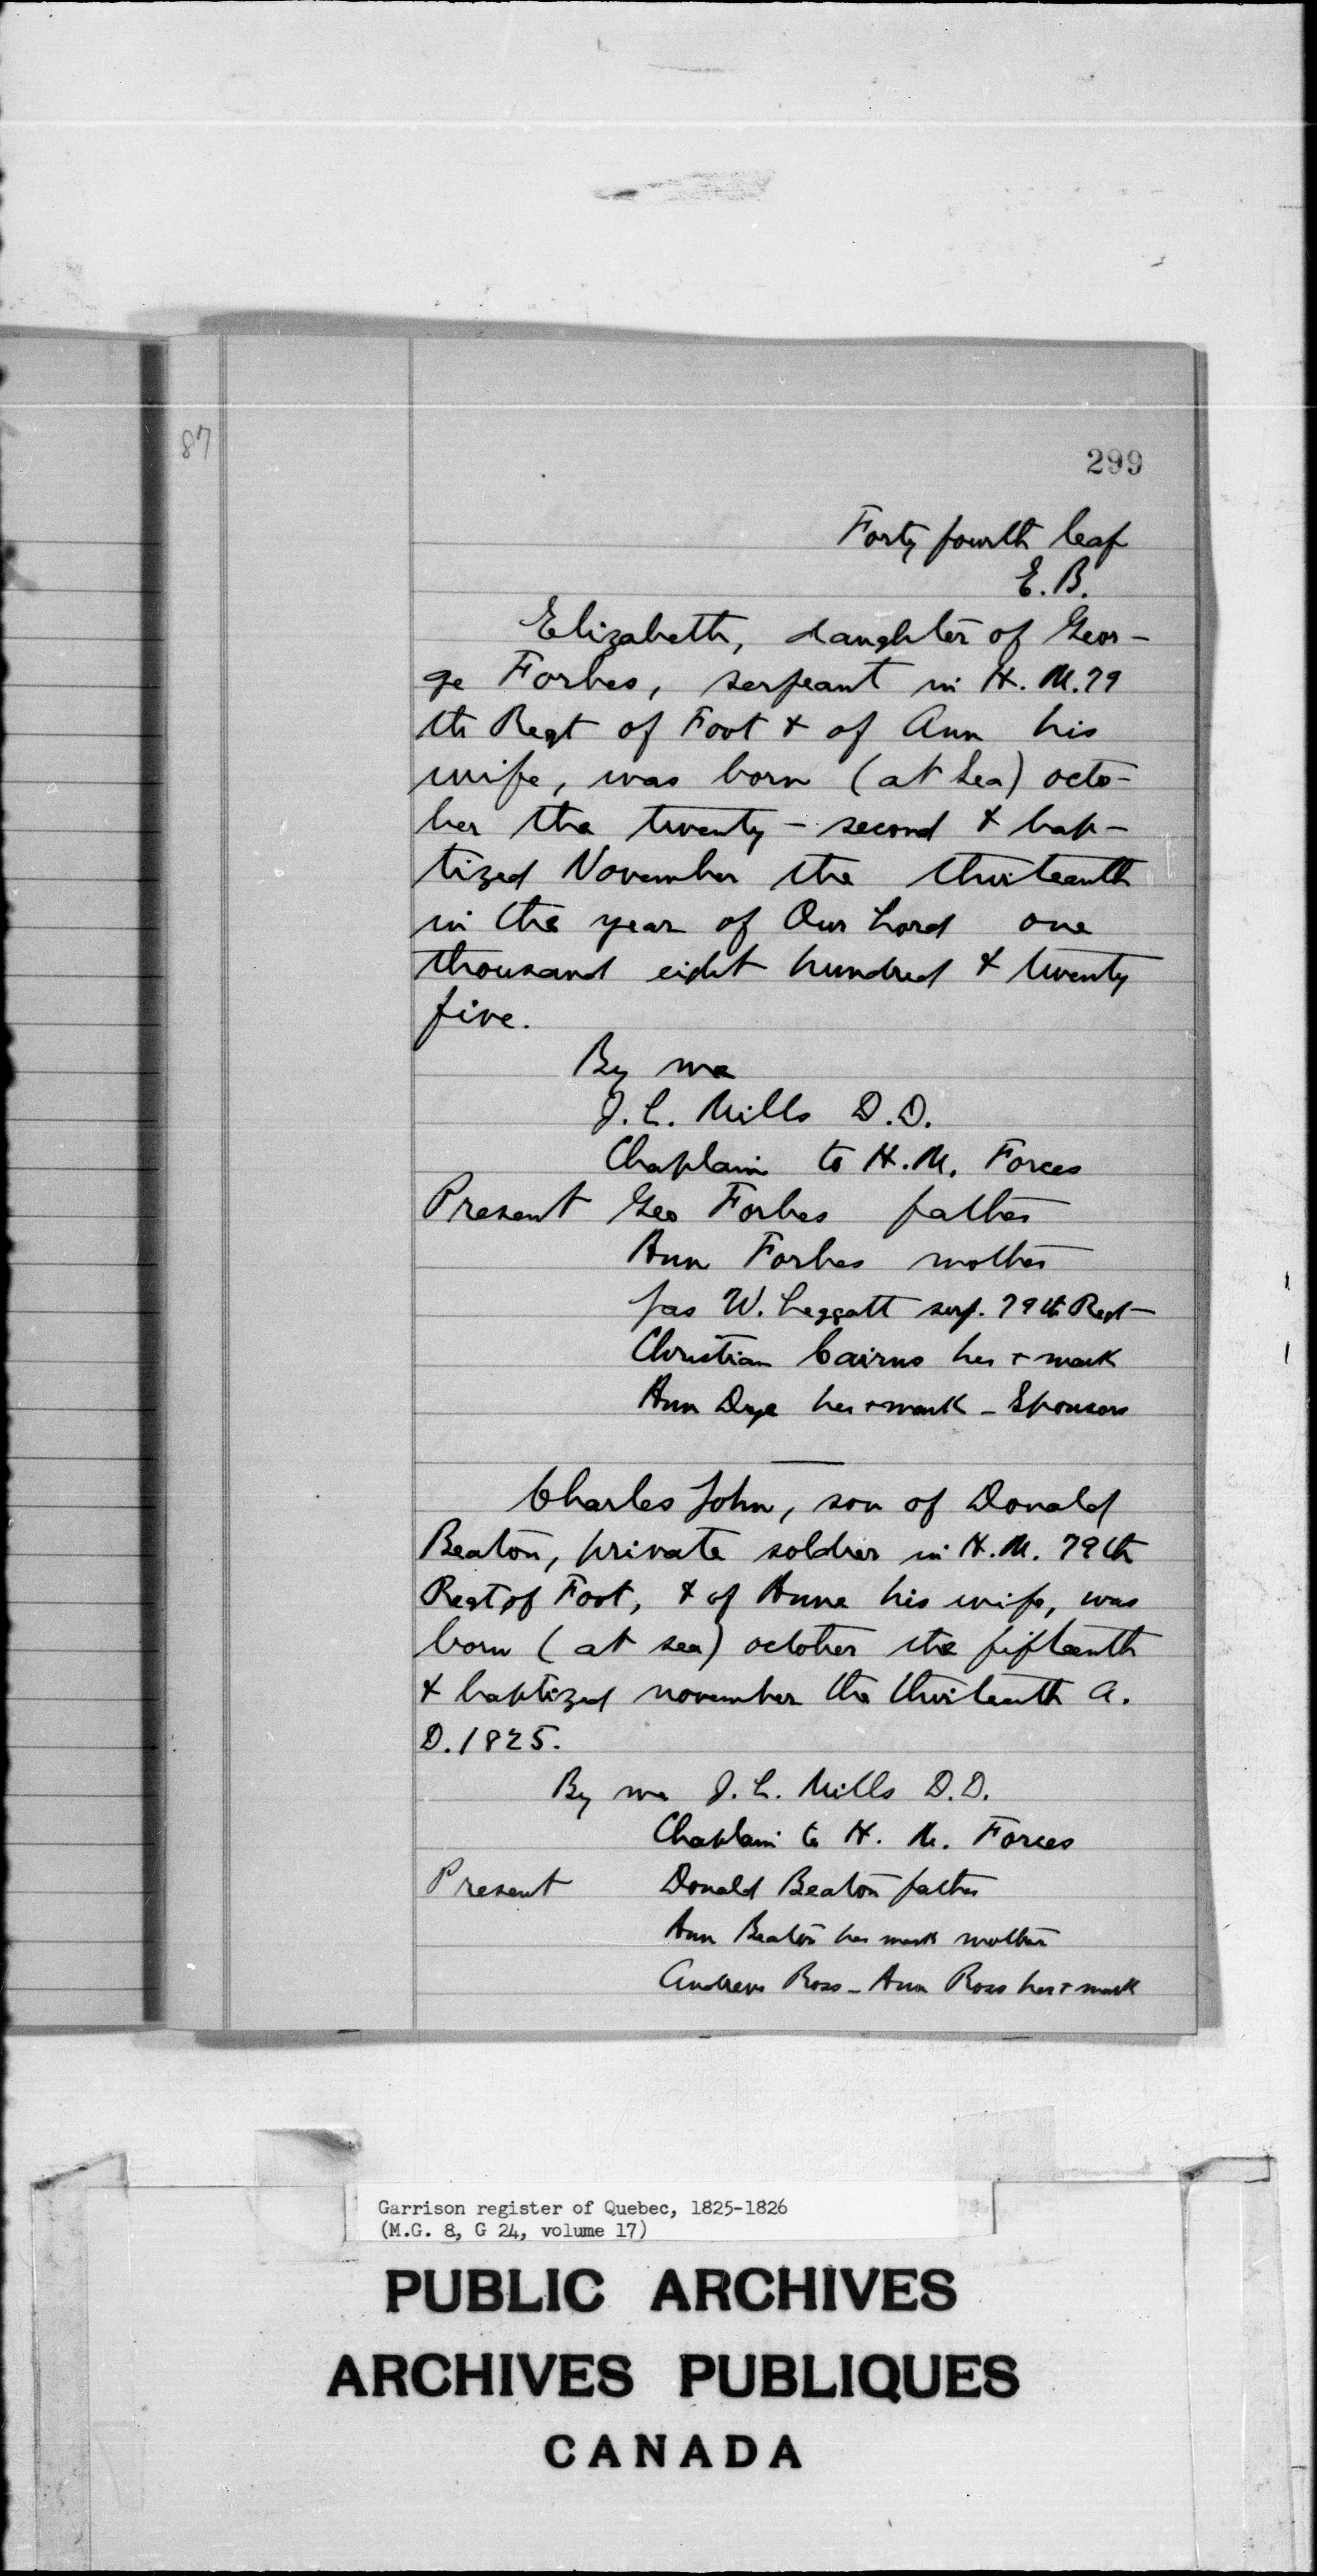 87
299
Forty fourth leaf
E. B.
Elizabeth, daughter of Geor-
ge Forbes, serjeant in H. M. 79
th Regt of Foot & of Ann his
wife, was born (at Sea) octo-
ber the twenty-second & bap-
tized November the thirteenth
in the year of Our Lord one
thousand eight hundred & twenty
five.
By me
J. L. Mills D.D.
Chaplain to H. M. Forces
Present Geo Forbes father
Ann Forbes mother
Jas W. Leggatt serj. 79th Regt
Christian Cairns her + mark
Ann Dye her + mark - Sponsors
Charles John, son of Donald
Beaton, private soldier in H. M. 79th
Regt of Foot, & of Anne his wife, was
born (at sea) october the fifteenth
& baptized november the thirteenth A.
D. 1825.
By me J. L. Mills D.D.
Chaplain to H. M. Forces
Present Donald Beaton father
Ann Beaton her mark mother
Andrew Ross - Ann Ross her + mark
Garrison register of Quebec, 1825-1826
(M.G. 8, G 24, volume 17)
PUBLIC ARCHIVES
ARCHIVES PUBLIQUES
CANADA